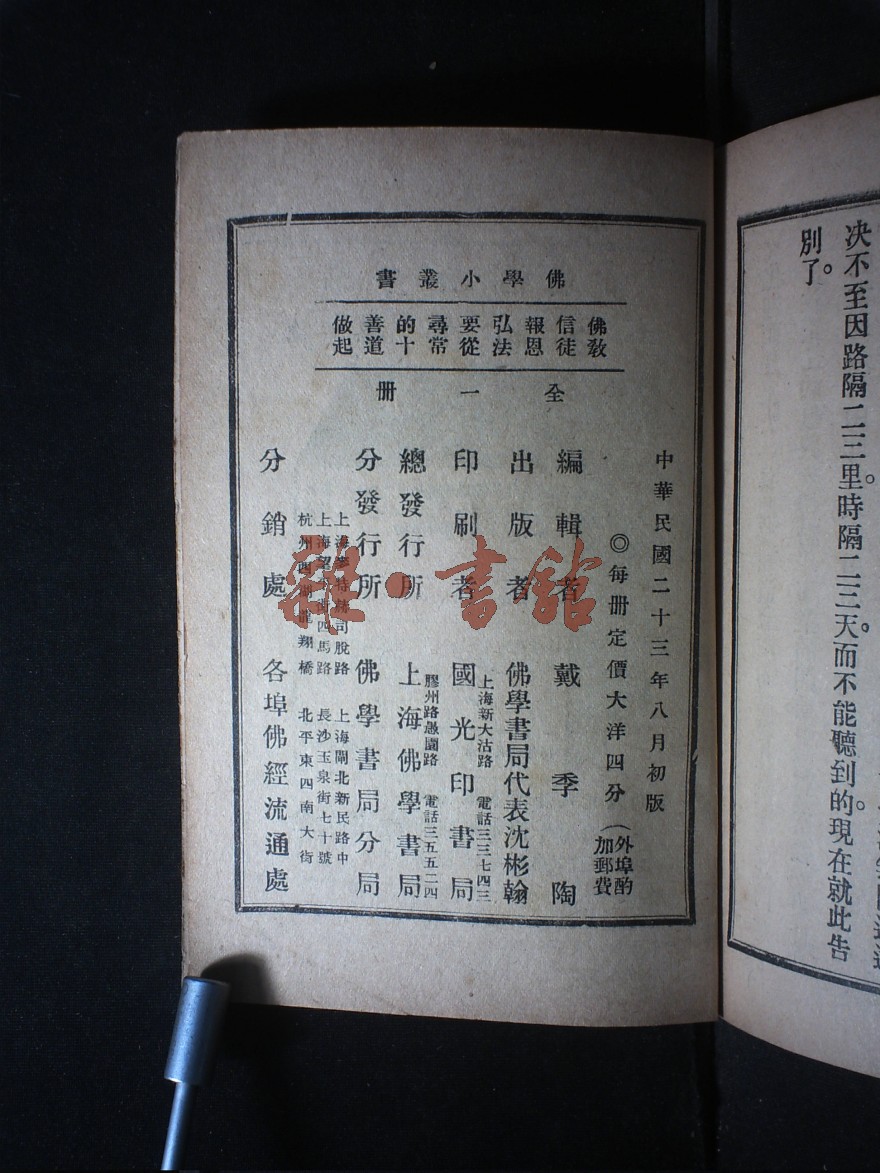 佛學小叢書
佛教信徒報恩弘法要從尋常的十善道做起
全一册
中華民國二十三年八月初版
◎每册定價大洋四分（外埠酌加郵費
編輯者 戴季陶
出版者 佛學書局代表沈彬翰
上海新大沽路 電話三三七四三
印刷者 國光印書局
膠州路愚園路 電話三五五二四
總發行所 上海佛學書局
分發行所 佛學書局分局
上海 司脫路 上海閘北新民路中
上海望 街四馬路 長沙玉泉街七十號
杭州西湖龍翔橋 北平東四南大街
分銷處 各埠佛經流通處
决不至因路隔二三里。時隔二三天。而不能聽到的。現在就此告
別了。
雜·書館